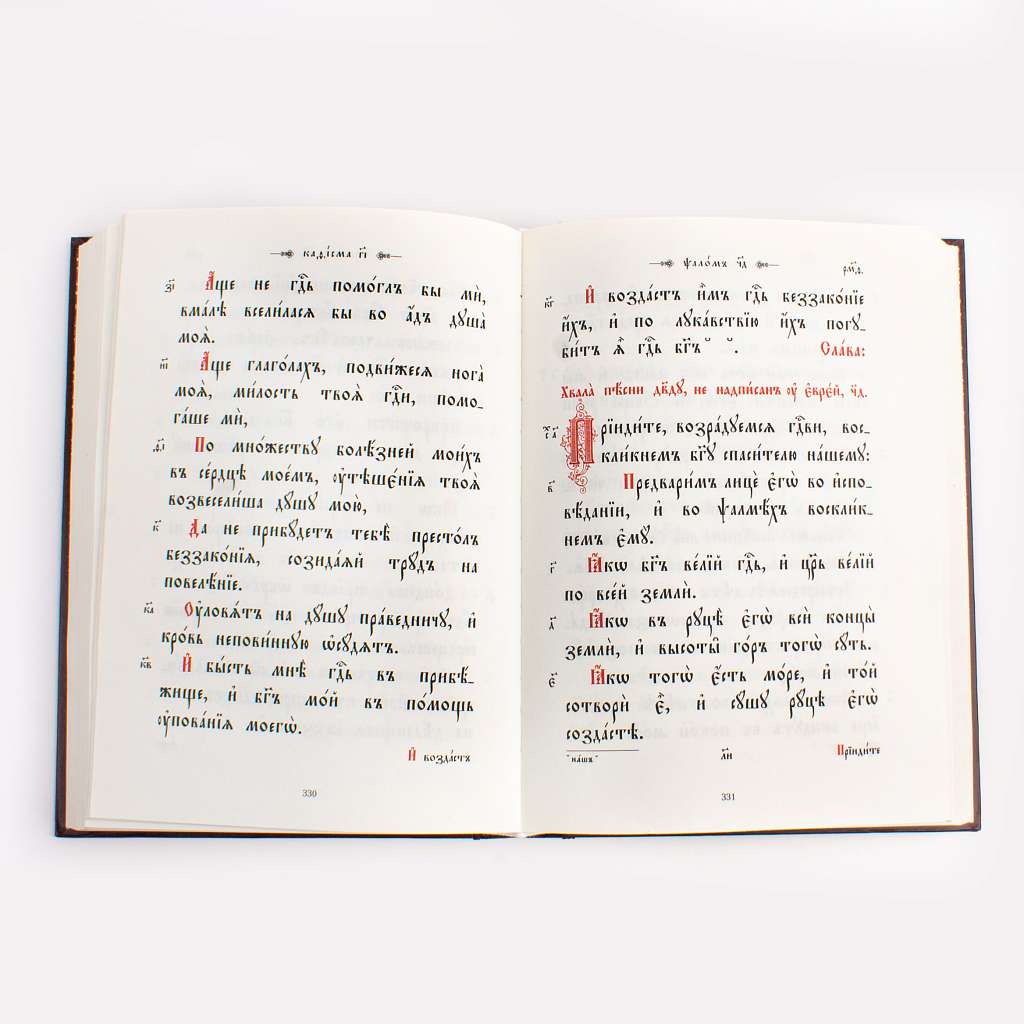 каѳі́сма г҃і
з҃і А҆́ще не гдⷭ҇ь помо́глъ бы мѝ,
вма́лѣ всели́лася бы во а҆́дъ дꙋша̀
моѧ̀.
и҃і А҆́ще глаго́лахъ, подви́жесѧ нога̀
моѧ̀, ми́лость твоѧ̀ гдⷭ҇и, помо-
га́ше мѝ,
ѳ҃і По мно́жествꙋ болѣ́зней мои́хъ
въ се́рдцѣ мое́мъ, ᲂу҆тѣшє́нїѧ твоѧ̑
возвесели́ша дꙋ́шꙋ мою̀,
к҃ Да не прибꙋ́детъ тебѣ̀ престо́лъ
беззако́нїѧ, созида́ѧй трꙋ́дъ на
повелѣ́нїе.
к҃а Оу҆ловѧ́тъ на дꙋ́шꙋ пра́ведничꙋ, и҆
кро́вь непови́ннꙋю ѡ҆сꙋ́дѧтъ.
к҃в И҆ бы́сть мнѣ̀ гдⷭ҇ь въ прибѣ́-
жище, и҆ бг҃ъ мо́й въ по́мощь
ᲂу҆пова́нїѧ моегѡ̀.
И҆ возда́стъ
330
ѱало́мъ ч҃д
рм҃ѳ.
к҃г И҆ возда́стъ и҆̀мъ гдⷭ҇ь беззако́нїе
и҆́хъ, и҆ по лꙋка́вствїю и҆́хъ погꙋ-
би́тъ ѧ҆̀ гдⷭ҇ь бг҃ъ ̆ ̆. Сла́ва:
Хвала̀ пѣ́сни дв҃дꙋ, не надпи́санъ ᲂу҆ є҆врє́й, ч҃д.
Прїиди́те, возра́дꙋемсѧ гдⷭ҇ви, вос-
кли́кнемъ бг҃ꙋ спаси́телю на́шемꙋ:
в҃ Предвари́мъ лицѐ є҆гѡ̀ во и҆спо-
вѣ́данїи, и҆ во ѱалмѣ́хъ воскли́к-
немъ є҆мꙋ̀.
г҃ Ꙗ҆́кѡ бг҃ъ ве́лїй гдⷭ҇ь, и҆ цр҃ь ве́лїй
по все́й землѝ.
д҃ Ꙗ҆́кѡ въ рꙋцѣ̀ є҆гѡ̀ всѝ концы̀
землѝ, и҆ высѡты̀ го́ръ тогѡ̀ сꙋ́ть.
є҃ Ꙗ҆́кѡ тогѡ̀ є҆́сть мо́ре, и҆ то́й
сотворѝ є҆̀, и҆ сꙋ́шꙋ рꙋ́цѣ є҆гѡ̀
созда́стѣ.
̆на́шъ̆
ли
Прїиди́те
331